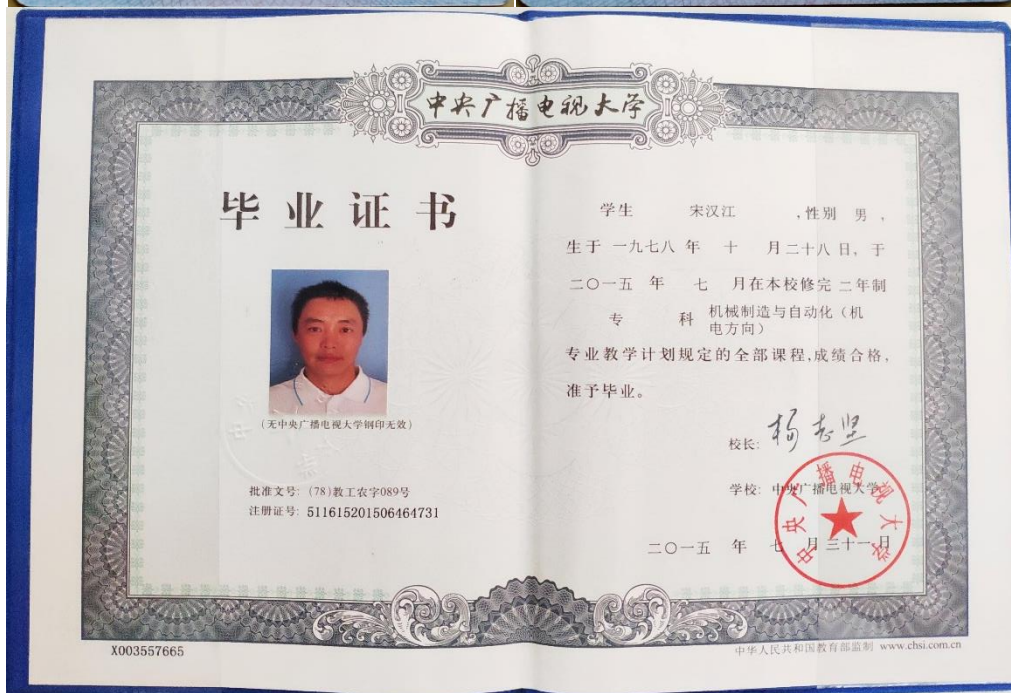 中央广播电视大学
毕业证书
(无中央广播电视大学钢印无效)
批准文号: (78)教工农字089号
注册证号: 511615201506464731
学生 宋汉江 ,性别 男 ,
生于 一九七八 年 十 月二十八 日, 于
二〇一五 年 七 月在本校修完 二年制
专 科 机械制造与自动化（机
电方向）
专业教学计划规定的全部课程,成绩合格,
准予毕业。
校长: 杨志坚
学校: 中央广播电视大学
二〇一五 年 七 月三十一日
中央广播电视大学
X003557665
中华人民共和国教育部监制 www.chsi.com.cn